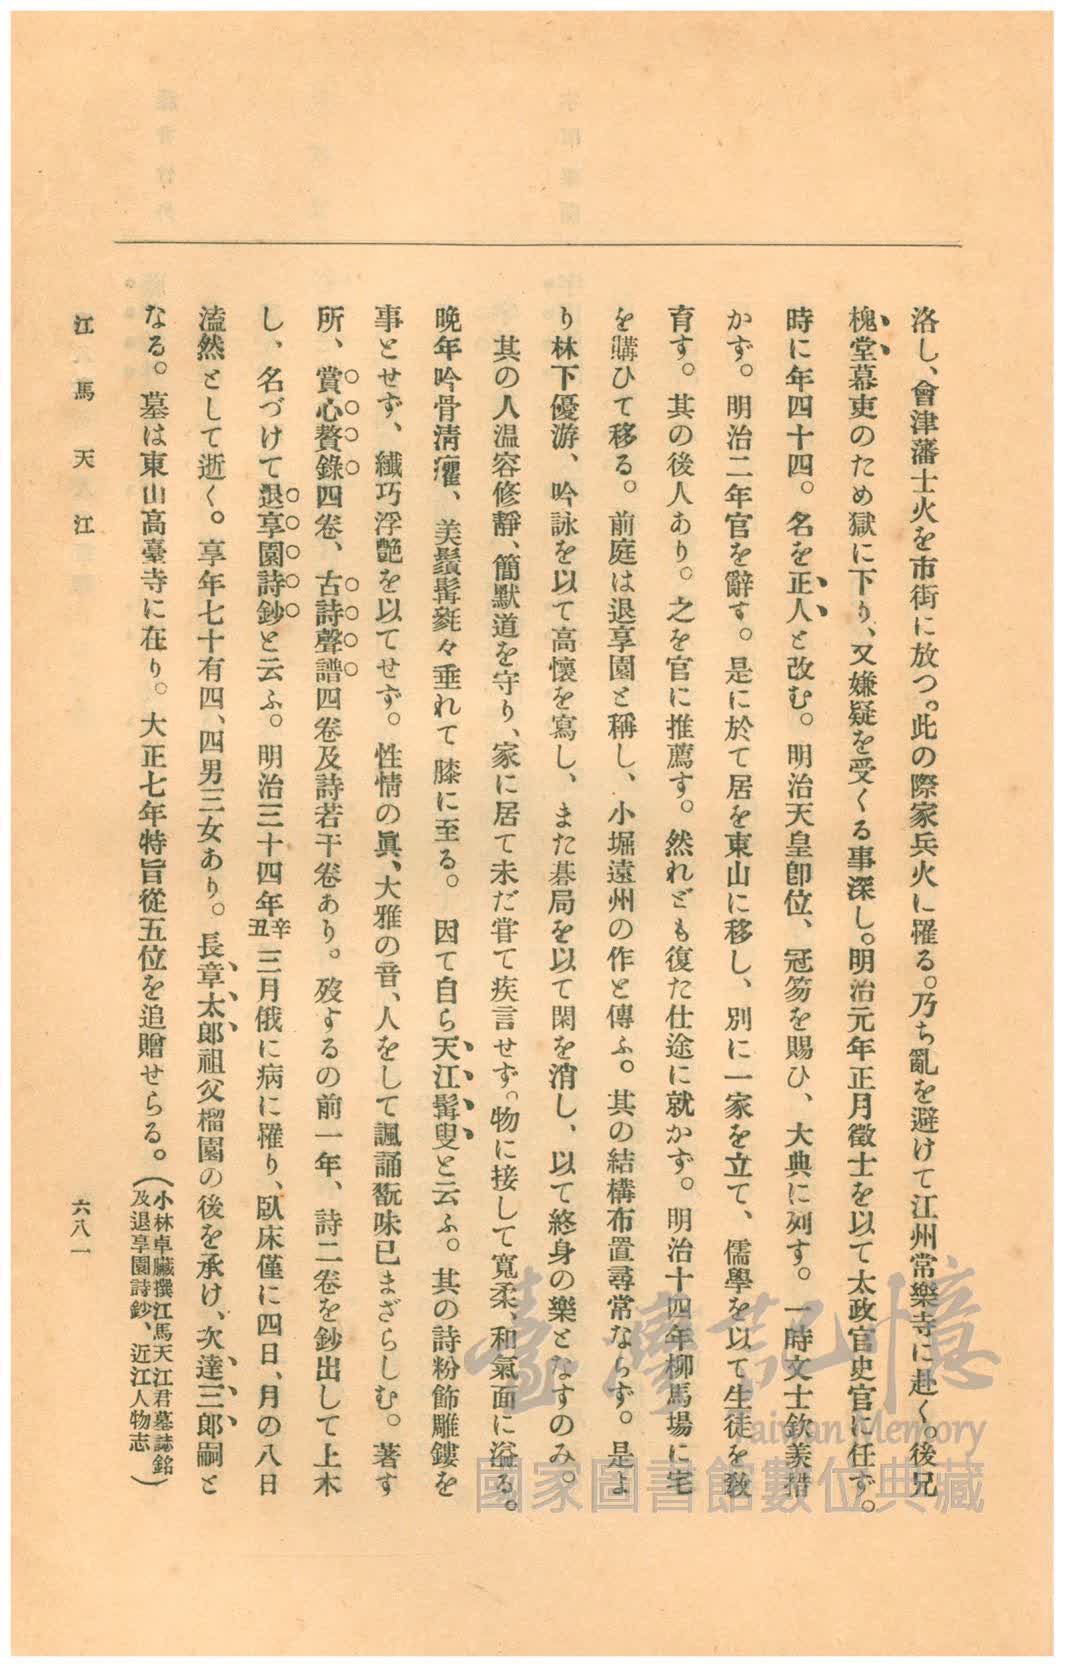 洛し、會津藩士火を市街に放つ。此の際家兵火に罹る。乃ち亂を避けて江州常樂寺に赴く。後兄
槐堂幕吏のため獄に下り、又嫌疑を受くる事深し。明治元年正月徵士を以て太政官史官に任ず。
時に年四十四。名を正人と改む。明治天皇卽位、冠笏を賜ひ、大典に列す。一時文士欽羨措
かず。明治二年官を辭す。是に於て居を東山に移し、別に一家を立て、儒學を以て生徒を敎
育す。其の後人あり。之を官に推薦す。然れども復た仕途に就かず。明治十四年柳馬場に宅
を購ひて移る。前庭は退享園と稱し、小堀遠州の作と傳ふ。其の結構布置尋常ならず。是よ
り林下優游、吟詠を以て高懷を寫し、また碁局を以て閑を消し、以て終身の樂となすのみ。
其の人溫容修靜、簡默道を守り、家に居て未だ甞て疾言せず。物に接して寬柔、和氣面に溢る。
晩年吟骨淸癯、美鬚髯毿々垂れて膝に至る。因て自ら天江髯叟と云ふ。其の詩粉飾雕鏤を
事とせず、纖巧浮艷を以てせず。性情の眞、大雅の音、人をして諷誦翫味已まざらしむ。著す
所、賞心贅錄四卷、古詩聲譜四卷及詩若干卷あり。歿するの前一年、詩二卷を鈔出して上木
し、名づけて退享園詩鈔と云ふ。明治三十四年辛丑三月俄に病に罹り、臥床僅に四日、月の八日
溘然として逝く。享年七十有四、四男三女あり。長章太郞祖父榴園の後を承け、次達三郞嗣と
なる。墓は東山高臺寺に在り。大正七年特旨從五位を追贈せらる。(小林卓藏撰江馬天江君墓誌銘
及退享園詩鈔、近江人物志)
江馬天江
六八一
臺灣記憶
Taiwan Memory
國家圖書館數位典藏